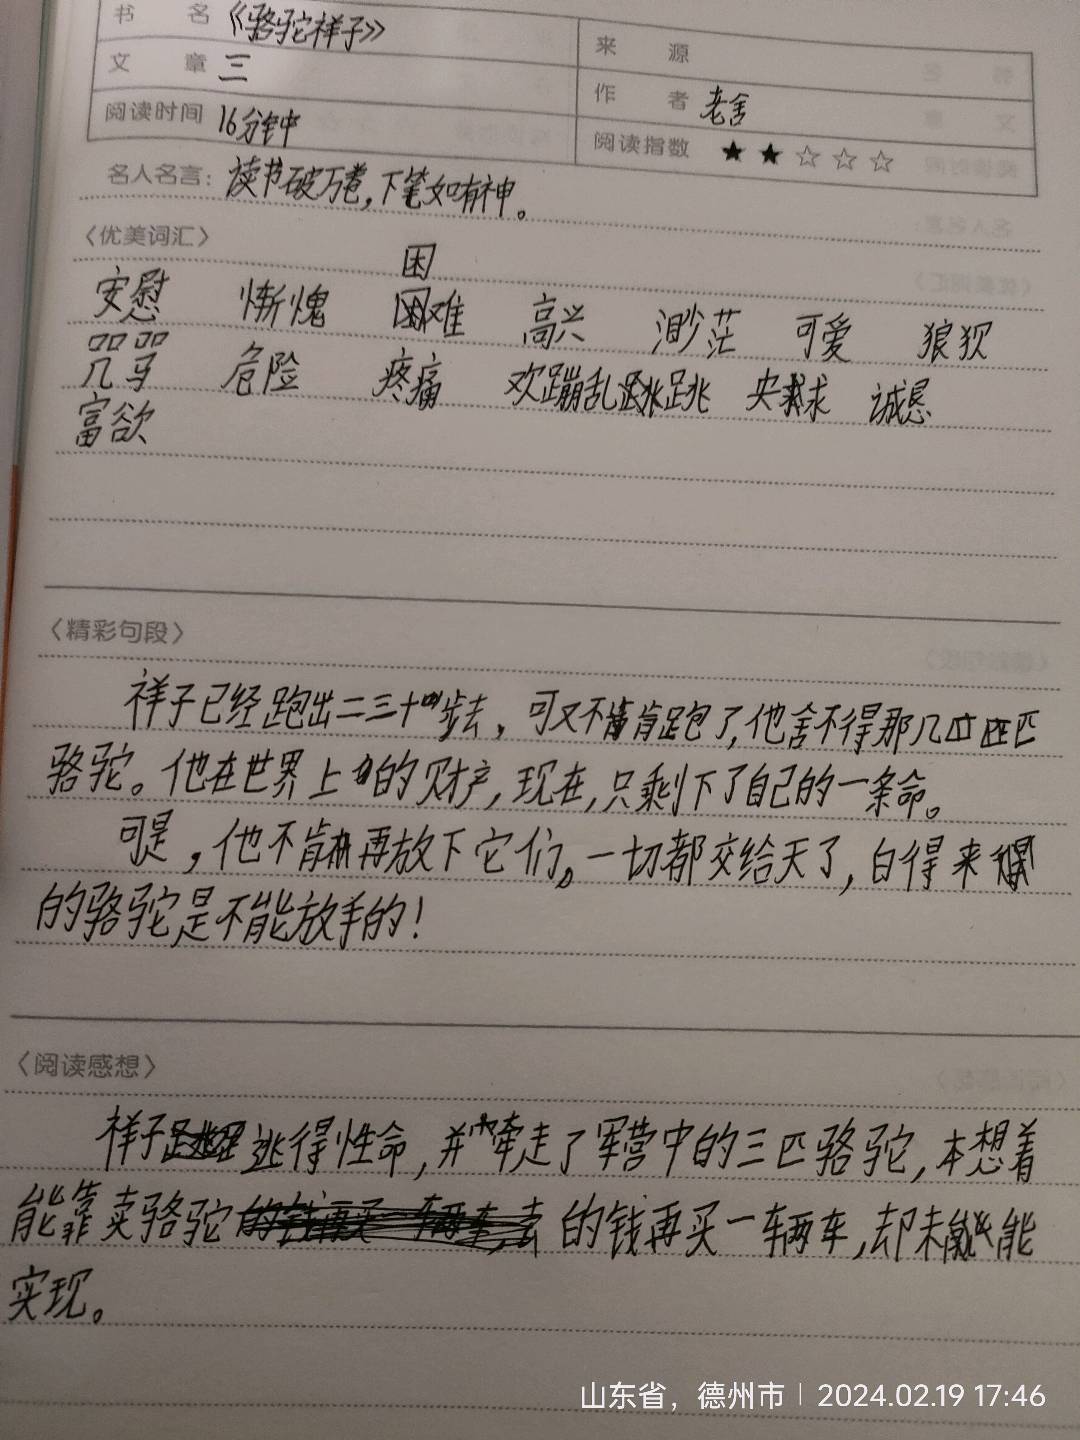 书 名 《骆驼祥子》
来 源
文 章 三
作 者 老舍
阅读时间 16分钟
阅读指数 ★★☆☆☆
名人名言：读书破万卷，下笔如有神。
〈优美词汇〉
困
安慰 惭愧 难 高兴 渺茫 可爱 狼狈
咒骂 危险 疼痛 欢蹦乱跳 央求 诚恳
富欲
〈精彩句段〉
祥子已经跑出二三十步去，可又不肯跑了，他舍不得那几匹
骆驼。他在世界上的财产，现在，只剩下了自己的一条命。
可是，他不肯再放下它们。一切都交给天了，白得来
的骆驼是不能放手的！
〈阅读感想〉
祥子逃得性命，并牵走了军营中的三匹骆驼，本想着
能靠卖骆驼的钱再买一辆车，却未能
实现。
山东省，德州市 | 2024.02.19 17:46